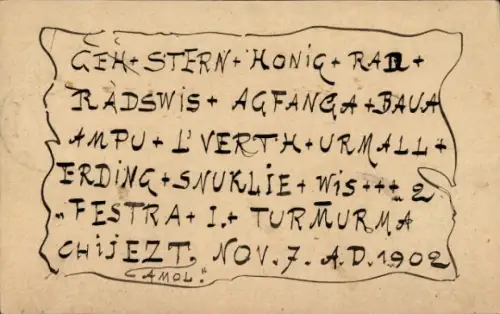 GEH + STERN + HONIG + RAR +
RADSWIS + AGFANGA + BAUA
AMPU + L'VERTH + URMALL +
ERDING + SNUKLIE + WIS + + + 2
"FESTRA + I. + TURMURMA
CHIJEZT. NOV. 7. A.D. 1902
CAMOL."